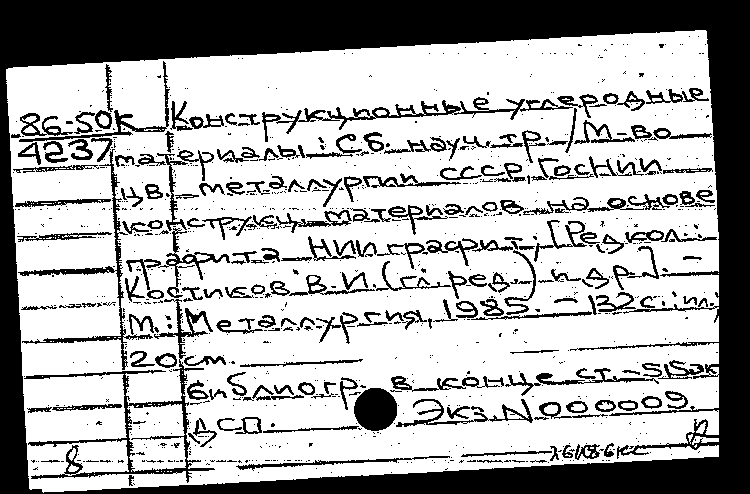 86-50к Конструкционные углеродные
4237 материалы : Сб. науч. тр. / М-во
цв. металлургии СССР, ГосНИИ
конструкц. материалов на основе
графита НИИграфит; [Редкол.:
Костиков В.И. (гл. ред.) и др.]. -
М.: Металлургия, 1985. - 132 с.: ил.;
20 см.
Библиогр. в конце ст. - 515 эк
ДСП. Экз. N 000009.
8